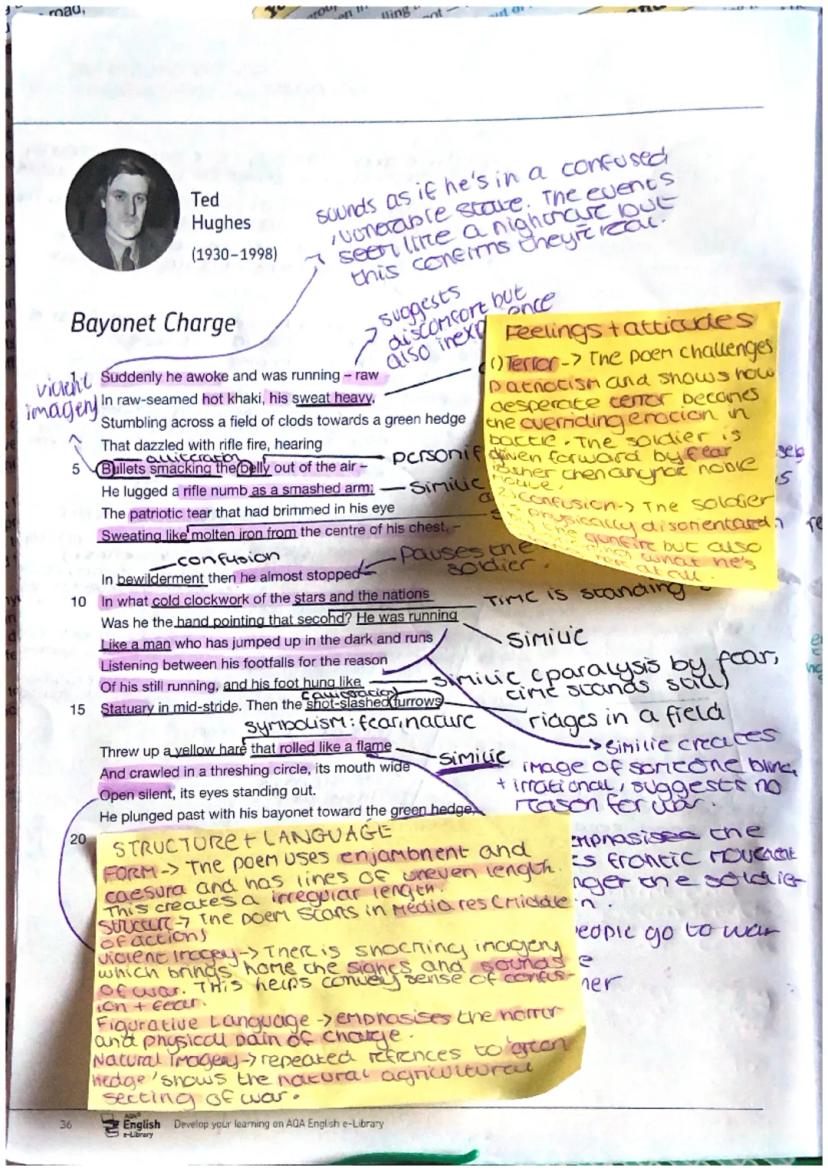 Ted
Hughes
(1930–1998)
sounds as if he's in a confused
, vonerable state. The events
seem like a nightmare but
this confirms they're real.
Bayonet Charge
suggests
discomfort but
also inex ence
violent
imagery
1 Suddenly he awoke and was running – raw
In raw-seamed hot khaki, his sweat heavy,
Stumbling across a field of clods towards a green hedge
That dazzled with rifle fire, hearing
5 Bullets smacking the belly out of the air –
personif
He lugged a rifle numb as a smashed arm;
Similie
The patriotic tear that had brimmed in his eye
Sweating like molten iron from the centre of his chest, –
confusion
Pauses the
soldier.
In bewilderment then he almost stopped
10 In what cold clockwork of the stars and the nations
Time is standing
Was he the hand pointing that second? He was running
Like a man who has jumped up in the dark and runs
Similie
Listening between his footfalls for the reason
Of his still running, and his foot hung like
similie (paralysis by fear,
time stands still
15 Statuary in mid-stride. Then the shot-slashed furrows
ridges in a field
symbolism: fear/nature
Threw up a yellow hare that rolled like a flame
Similie
And crawled in a threshing circle, its mouth wide
Open silent, its eyes standing out.
He plunged past with his bayonet toward the green hedge,
20
Similie creates
image of someone blind,
+ irrational, suggests no
reason for war.
emphasises the
s frantic movement
nger the soldier
n.
eople go to war
e
her
Feelings + attitudes
(1) Terror -> The poem challenges
patriotism and shows how
desperate terror becomes
the overriding emotion in
battle. The soldier is
driven forward by fear
rather than any
2) Confusion -> The soldier
is physically disorientated
by the gunfire but also
what he's
at all.
STRUCTURE + LANGUAGE
FORM -> The poem uses enjambment and
caesura and has lines of uneven length.
This creates a irregular length.
Structure -> The poem starts in Media res (middle
of action)
violent imagey -> There is shocking imagery
which brings home the sights and sounds
of war. This helps convey sense of confus-
ion + fear.
Figurative Language -> emphasises the horror
and physical pain of charge.
Natural Imagery -> repeated refrences to 'green
hedge' shows the natural agricultural
setting of war.
36 AQA English e-Library Develop your learning on AQA English e-Library